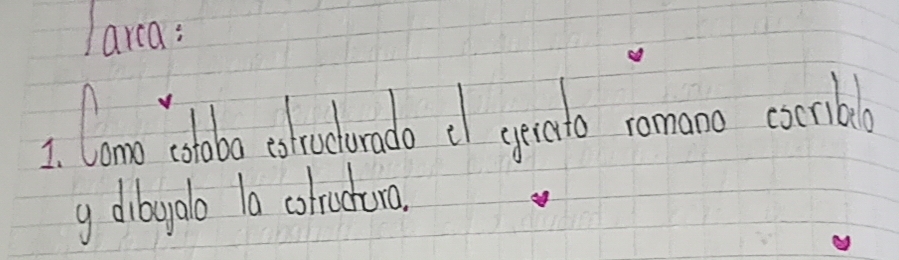 Tarea:
1. Como estaba estructurado el ejercito romano escribelo
y dibujalo la estructura.